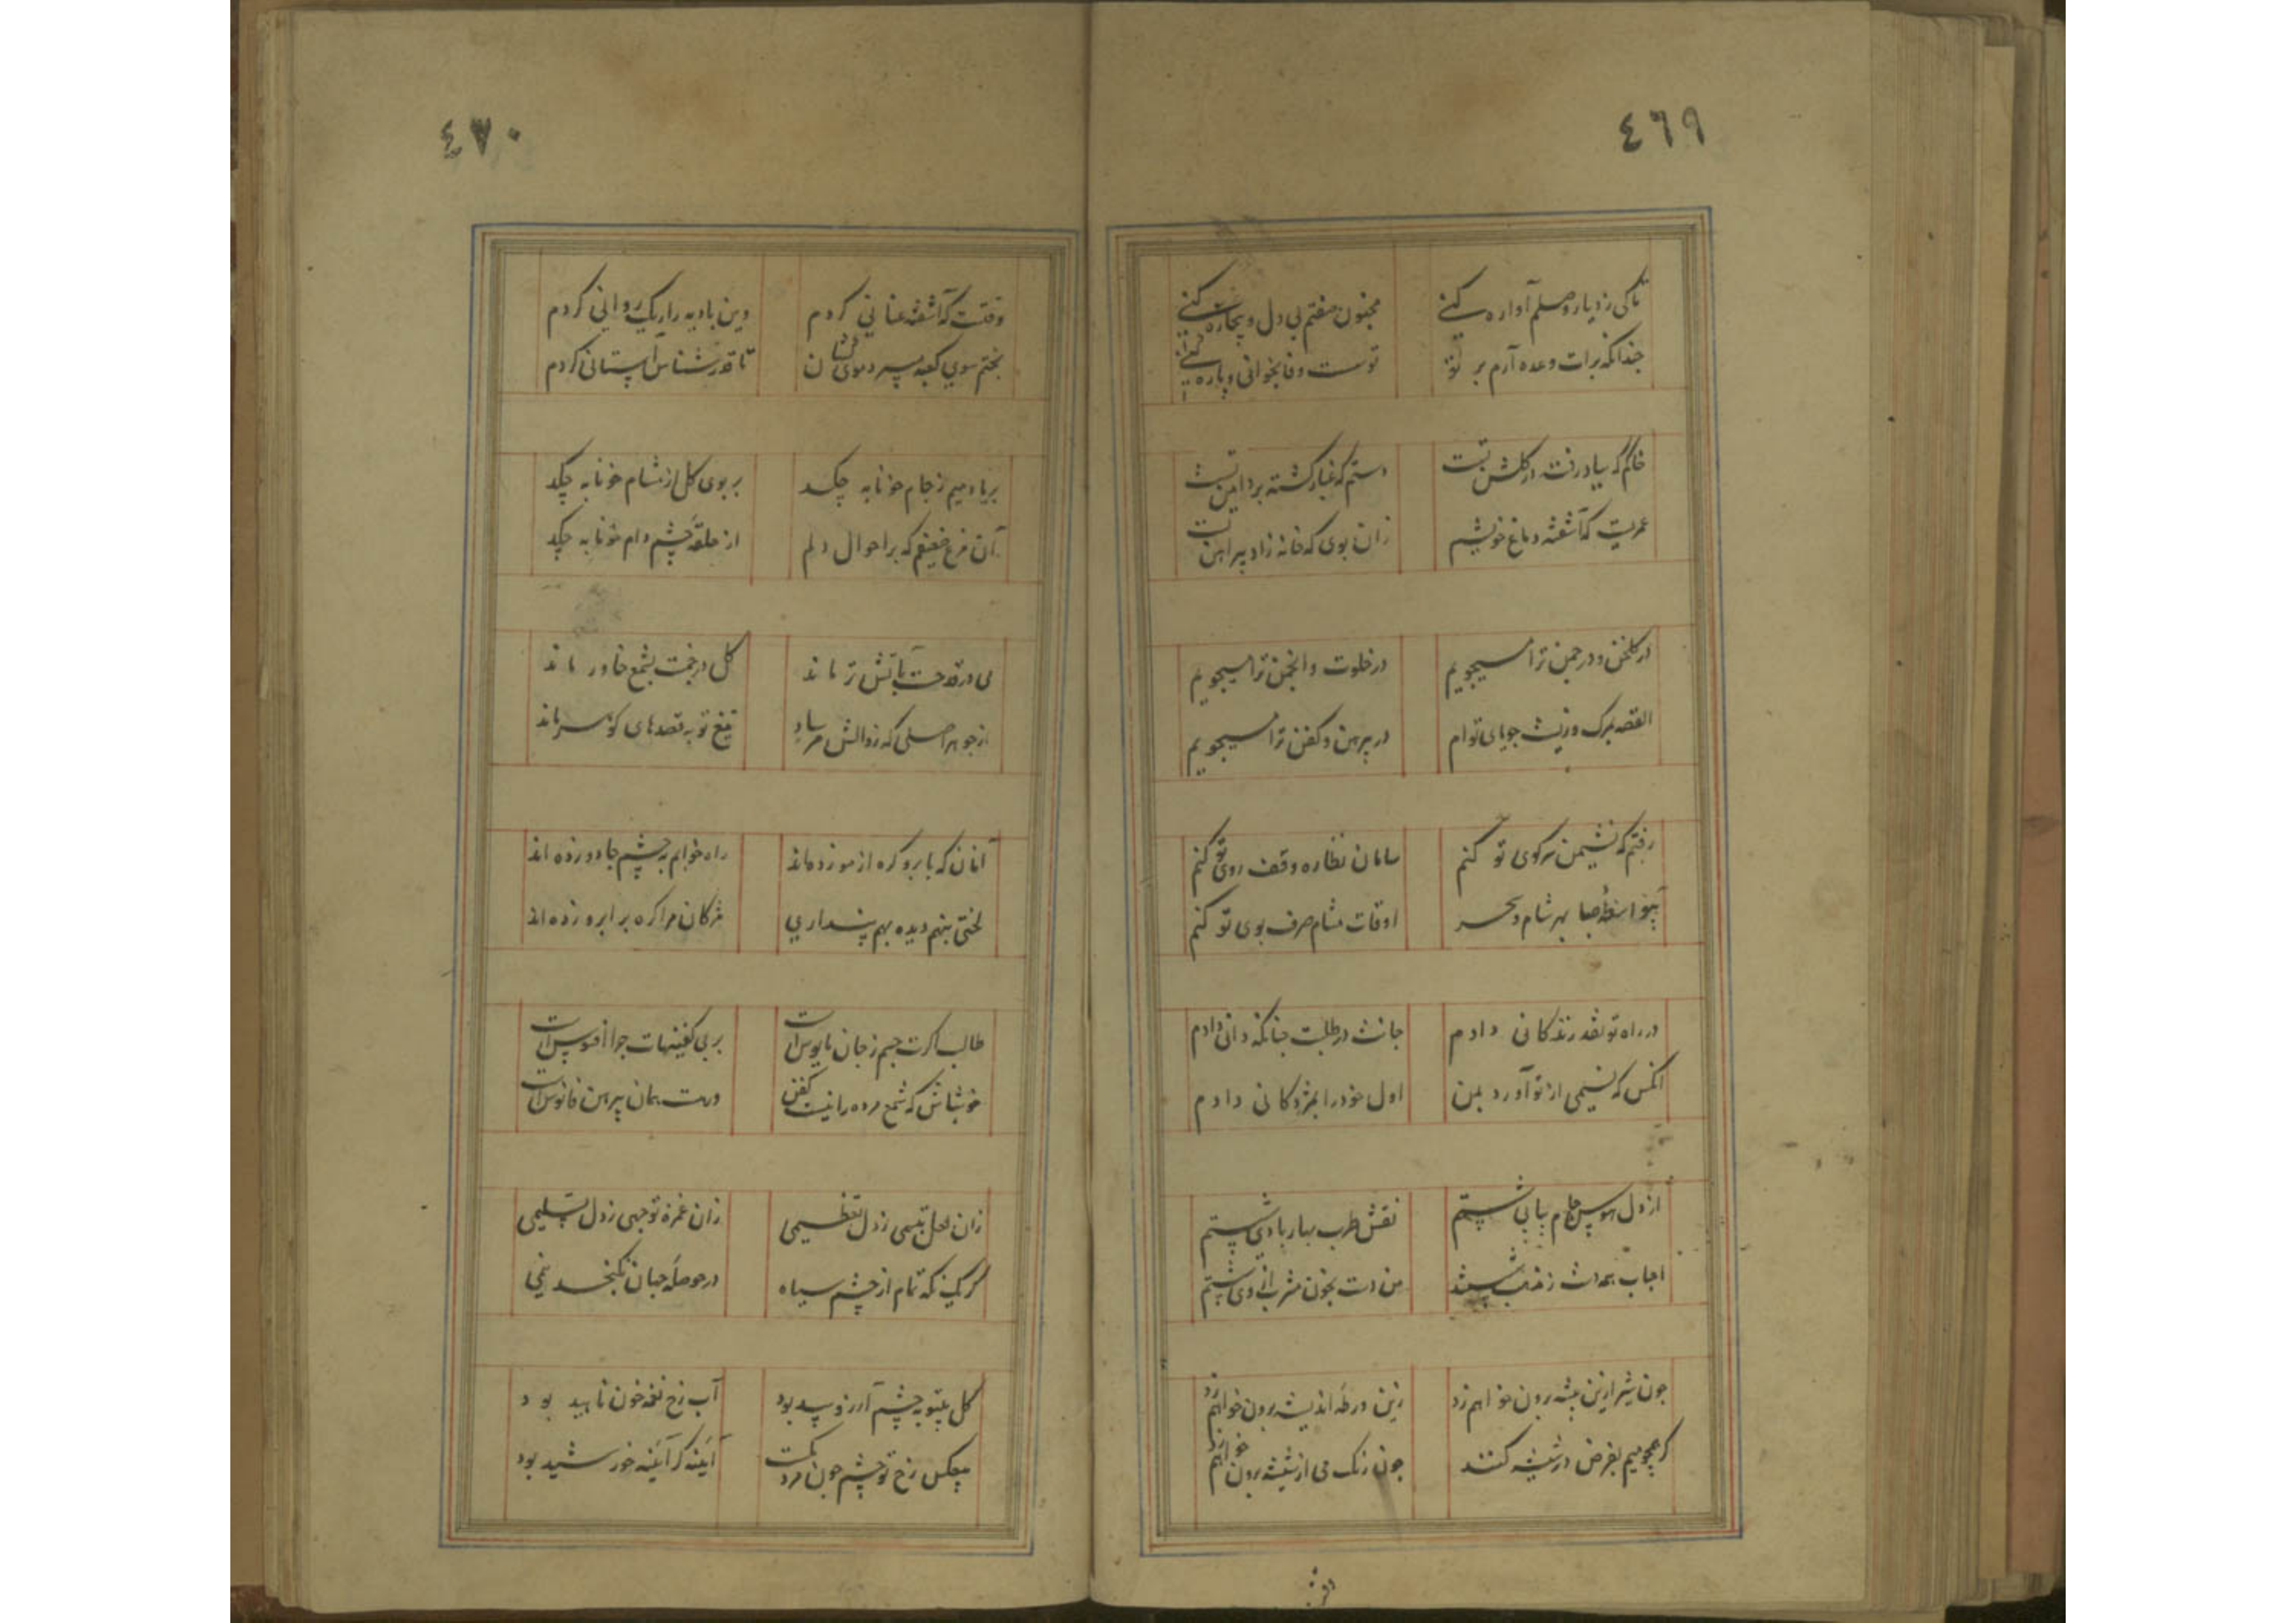 ٤٦٩
تاکی ز دیار وصلم آواره کنی
مجنون صفتم بی دل و بیچاره کنی
چندانکه برات وعده آرم بر تو
تو سست وفا بخوانی و پاره کنی
خاکم که بباد رفت از گلشن تست
دستم که غبار گشته بر دامن تست
عمریست که آشفته دماغ خویشم
زان بوی که خانه زاد پیراهن تست
در گلخن و در چمن ترا میجویم
در خلوت و انجمن ترا میجویم
القصه بمرک و زیست جویای توام
در پیرهن و کفن ترا میجویم
رفتم که نشیمن سر کوی تو کنم
سامان نظاره وقف روی تو کنم
بیواسطهٔ صبا بهر شام و سحر
اوقات مشام صرف بوی تو کنم
در راه تو نقد زندکانی دادم
جانت در طلبت چنانکه دانی دادم
آنکس که نسیمی از تو آورد بمن
اول خود را بمژدکانی دادم
از دل هوس جام پیاپی شستم
نقش طرب بهار تا دی شستم
احباب همه دست ز می شستند
من دست بخون مشرب از می شستم
چون شیر ازین بیشه برون خواهم زد
زین ورطهٔ اندیشه برون خواهم زد
گر همچو میم بفرض در شیشه کنند
چون رنک می از شیشه برون خواهم زد
٤٧٠
وقتست که آشفته عنانی کردم
وین بادیه را ریک روانی کردم
بختم سوی کعبه میبرد موی کشان
تا قدرشناس آستانی کردم
بر یاد میم ز جام خونابه چکد
بر بوی کل از مشام خونابه چکد
آن مرغ ضعیفم که بر احوال دلم
از حلقهٔ چشم دام خونابه چکد
می در قدحت بآتش تر ماند
کل در چمنت بشمع خاور ماند
از جوهر اصلی که زوالش مرساد
تیغ تو به قصدهای کوثر ماند
آنان که بابرو کره از مو زده‌اند
راه خوابم به چشم جادو زده اند
لختی بنهم دیده بهم پنداری
مژکان مرا کره بر ابرو زده اند
طالب اکرت جسم ز جان مایوس است
بر بی کفنیهات چرا افسوس است
خوش باش که شمع مرده را نیست کفن
ور هست همان پیرهن فانوس است
زان لعل تبسمی ز دل تعظیمی
زان غمزه توجهی ز دل تسلیمی
کر یک نکه تمام از چشم سیاه
در حوصلهٔ جهان نکنجد نیمی
کل بیتو به چشم آرزو بید بود
آب رخ نغمه خون ناهید بود
بیعکس رخ تو چشم چون مردمکست
آیینه کر آیینه خورشید بود